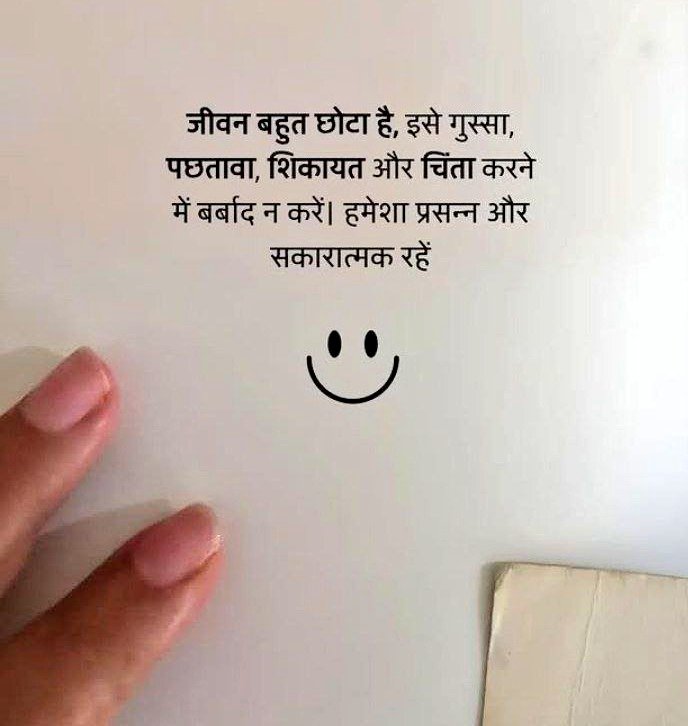 जीवन बहुत छोटा है, इसे गुस्सा,
पछतावा, शिकायत और चिंता करने
में बर्बाद न करें| हमेशा प्रसन्न और
सकारात्मक रहें